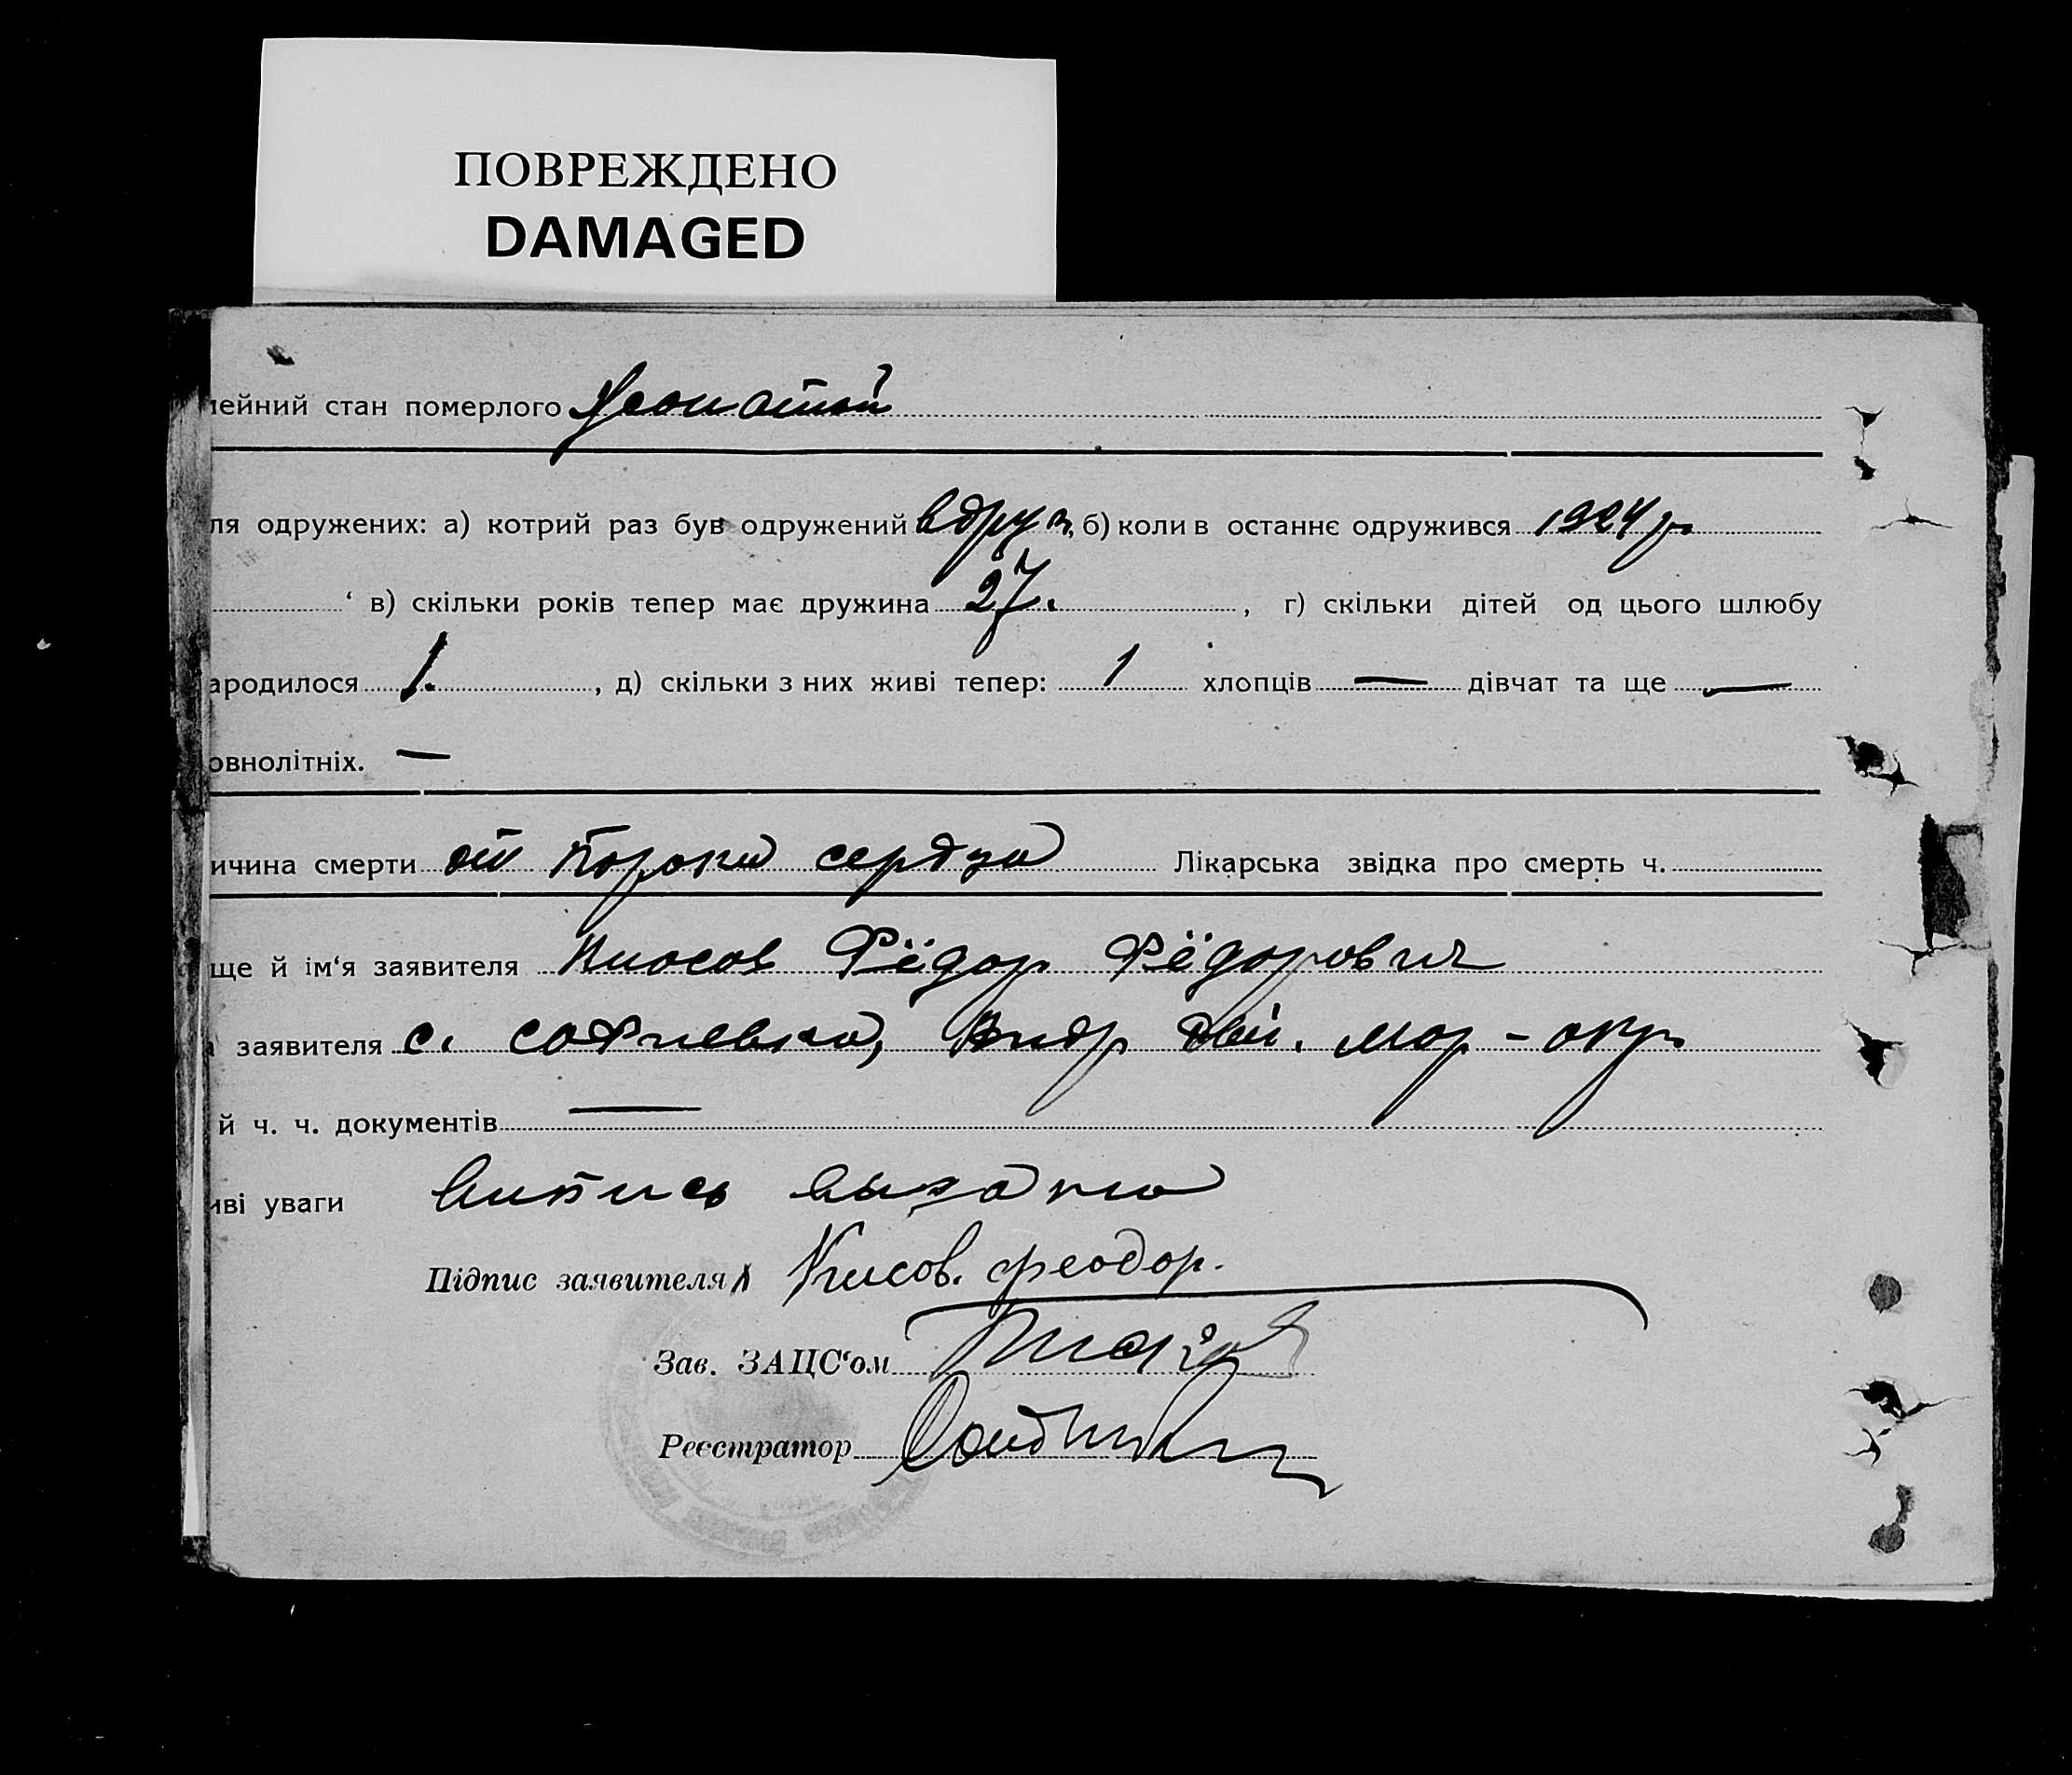 ПОВРЕЖДЕНО
DAMAGED
ейний стан померлого женатый
ля одружених: а) котрий раз був одружений вдруг, б) коли в останнє одружився 1924 г.
в) скільки років тепер має дружина 27. , г) скільки дітей од цього шлюбу
ародилося 1. , д) скільки з них живі тепер: 1 хлопців — дівчат та ще —
овнолітніх. —
ичина смерти от порока сердца Лікарська звідка про смерть ч.
ще й ім‘я заявителя Фёдор Фёдорович
заявителя с. Софиевка, Мар - окр
й ч. ч. документів —
иві уваги выдана
Підпис заявителя Феодор.
Зав. ЗАЦС‘ом
Реєстратор